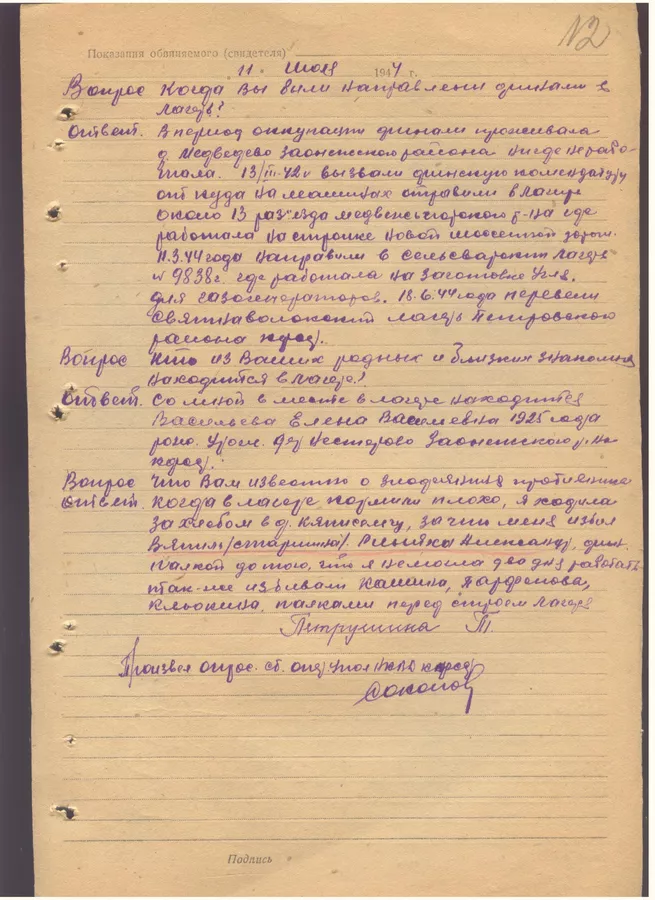 №2
Показания обвиняемого (свидетеля)
11 июля 1944 г.
Вопрос Когда Вы были направлены финнами в
лагерь?
Ответ. В период оккупации финнами проживала
д. Медведево Заонежского района нигде не рабо-
тала. 13/III-42г вызвали финскую комендатуру
от куда на машинах отправили в лагерь
около 13 разъезда медвежьегорского р-на где
работала на стройке новой шоссейной дороги.
11.3.44 года направили в Сельсварский лагерь
№ 9838г. где работала на заготовке угля.
для газогенераторов. 18.6.44 года перевели
Святнаволокский лагерь Петровского
района кфсср.
Вопрос Кто из Ваших родных и близких знакомых
находится в лагере?
Ответ. Со мной в месте в лагере находится
Васильева Елена Васильевна 1925 года
рожд. урож. дер Нестерово Заонежского р-на
кфсср.
Вопрос Что Вам известно о злодеяниях противника
Ответ. Когда в лагере кормили плохо, я ходила
за хлебом в д. Кяписельгу, за что меня избил
Александр, финн.
палкой до того, что я не могла два дня работать
так-же избивали Кашина, Парфенова,
Клюкина, палками перед строем лагеря
Петрушина Т.
Произвел опрос. ст. опер
Соколов
Подпись